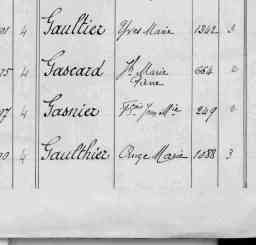 91 4 Gaultier Yves Marie 1342 3
95 4 Gascard Jh Marie Pierre 664 2
97 4 Gasnier Fçois Jean Mie 249 2
4 Gaulthier Ange Marie 1088 3